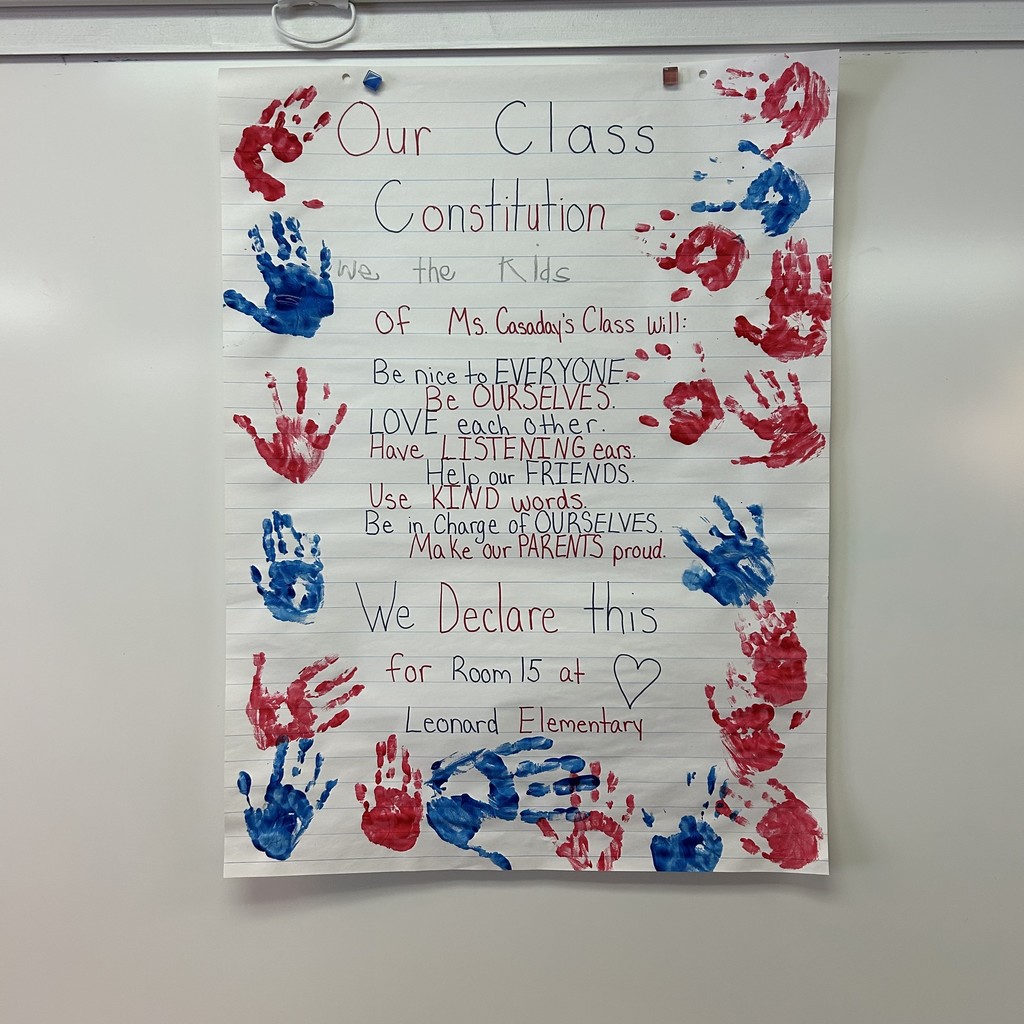 Our Class
Constitution
We the Kids
Of Ms. Casaday's Class will:
Be nice to EVERYONE.
Be OURSELVES.
LOVE each other.
Have LISTENING ears.
Help our FRIENDS.
Use KIND words.
Be in Charge of OURSELVES.
Make our PARENTS proud.
We Declare this
for Room 15 at
Leonard Elementary